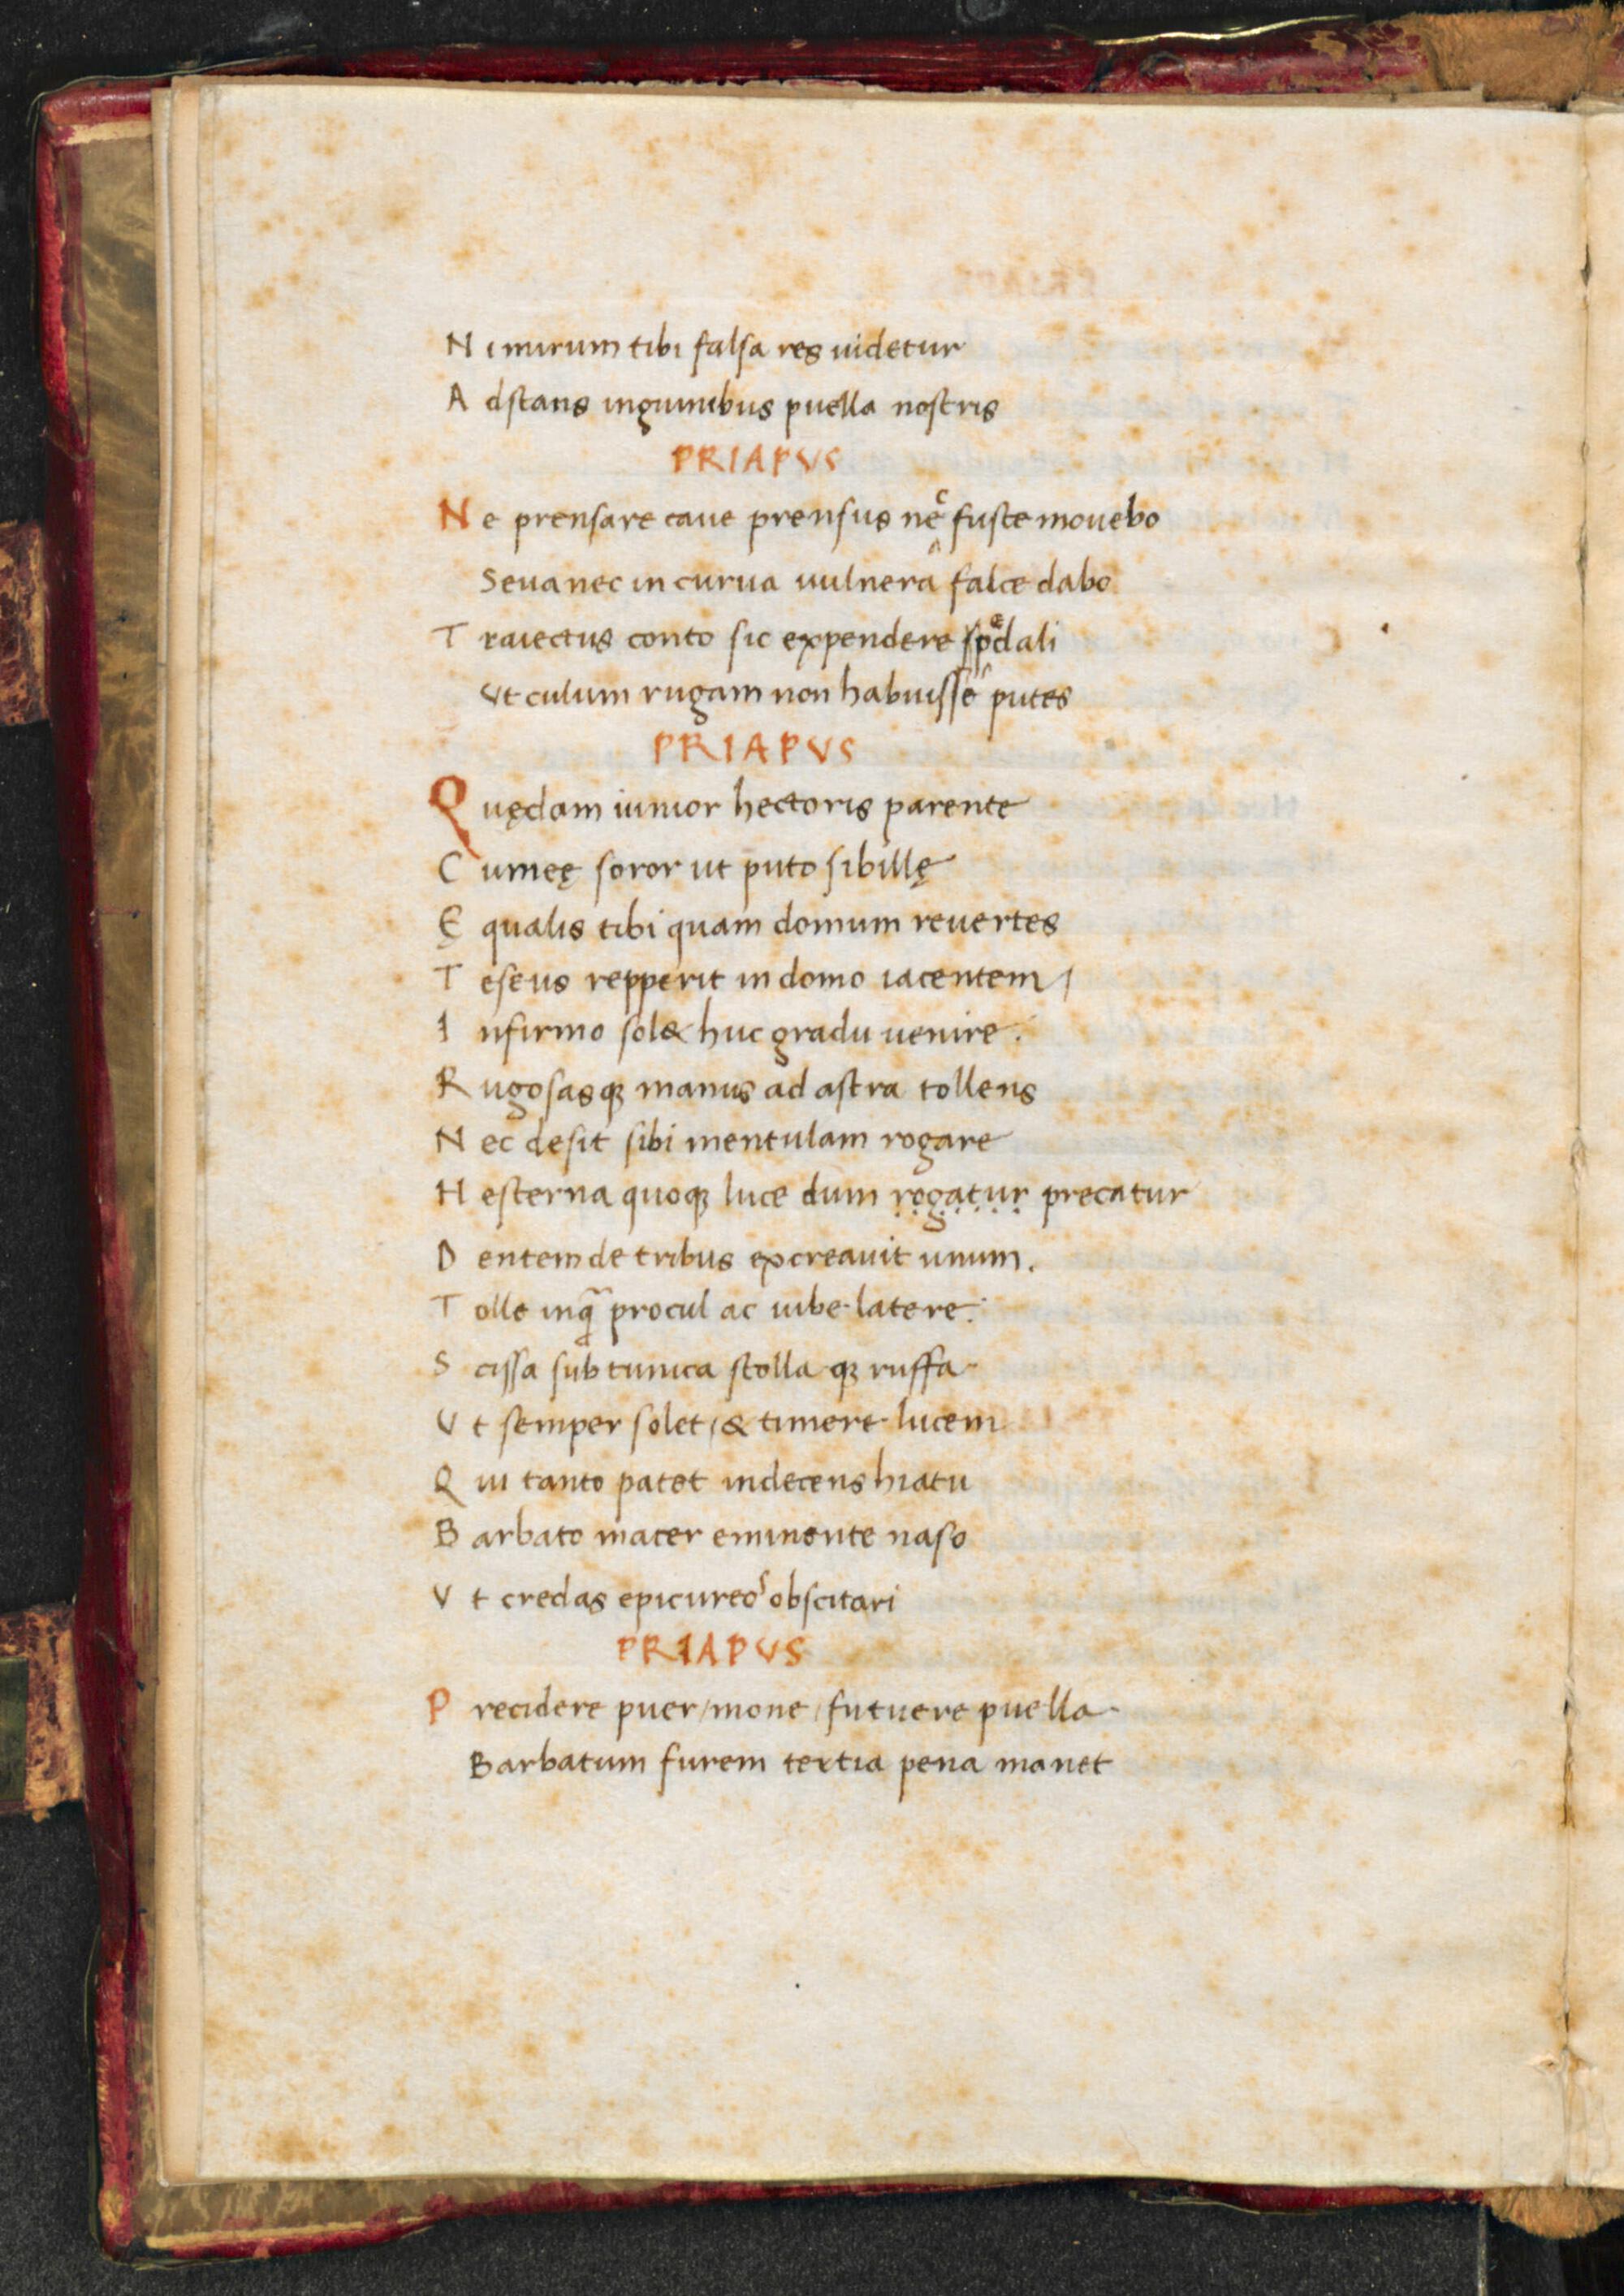 Nimirum tibi falsa res uidetur
Adstans inguinibus puella nostris
PRIAPVS
Ne prensare caue prensus nec fuste mouebo
Seua nec in curua uulnera falce dabo
Traiectus conto sic expendere spedali
Vt culum rugam non habuisse putes
PRIAPVS
Quędam iunior hectoris parente
Cumeę soror ut puto sibillę
Ęqualis tibi quam domum reuertes
Teseus repperit in domo iacentem /
Infirmo sol& huc gradu uenire.
Rugosasqꝫ manus ad astra tollens
Nec desit sibi mentulam rogare
Hesterna quoqꝫ luce dum ṛọg̣ạṭụṛ precatur
Dentem de tribus excreauit unum.
Tolle inqͣ procul ac iube latere.
Scissa sub tunica stolla qꝫ ruffa
Vt semper solet / & timere lucem
Qui tanto patet indecens hiatu
Barbato macer eminente naso
Vt credas epicureoˢ obscitari
PRIAPVS
Precidere puer / mone / futuere puella
Barbatum furem tertia pena manet